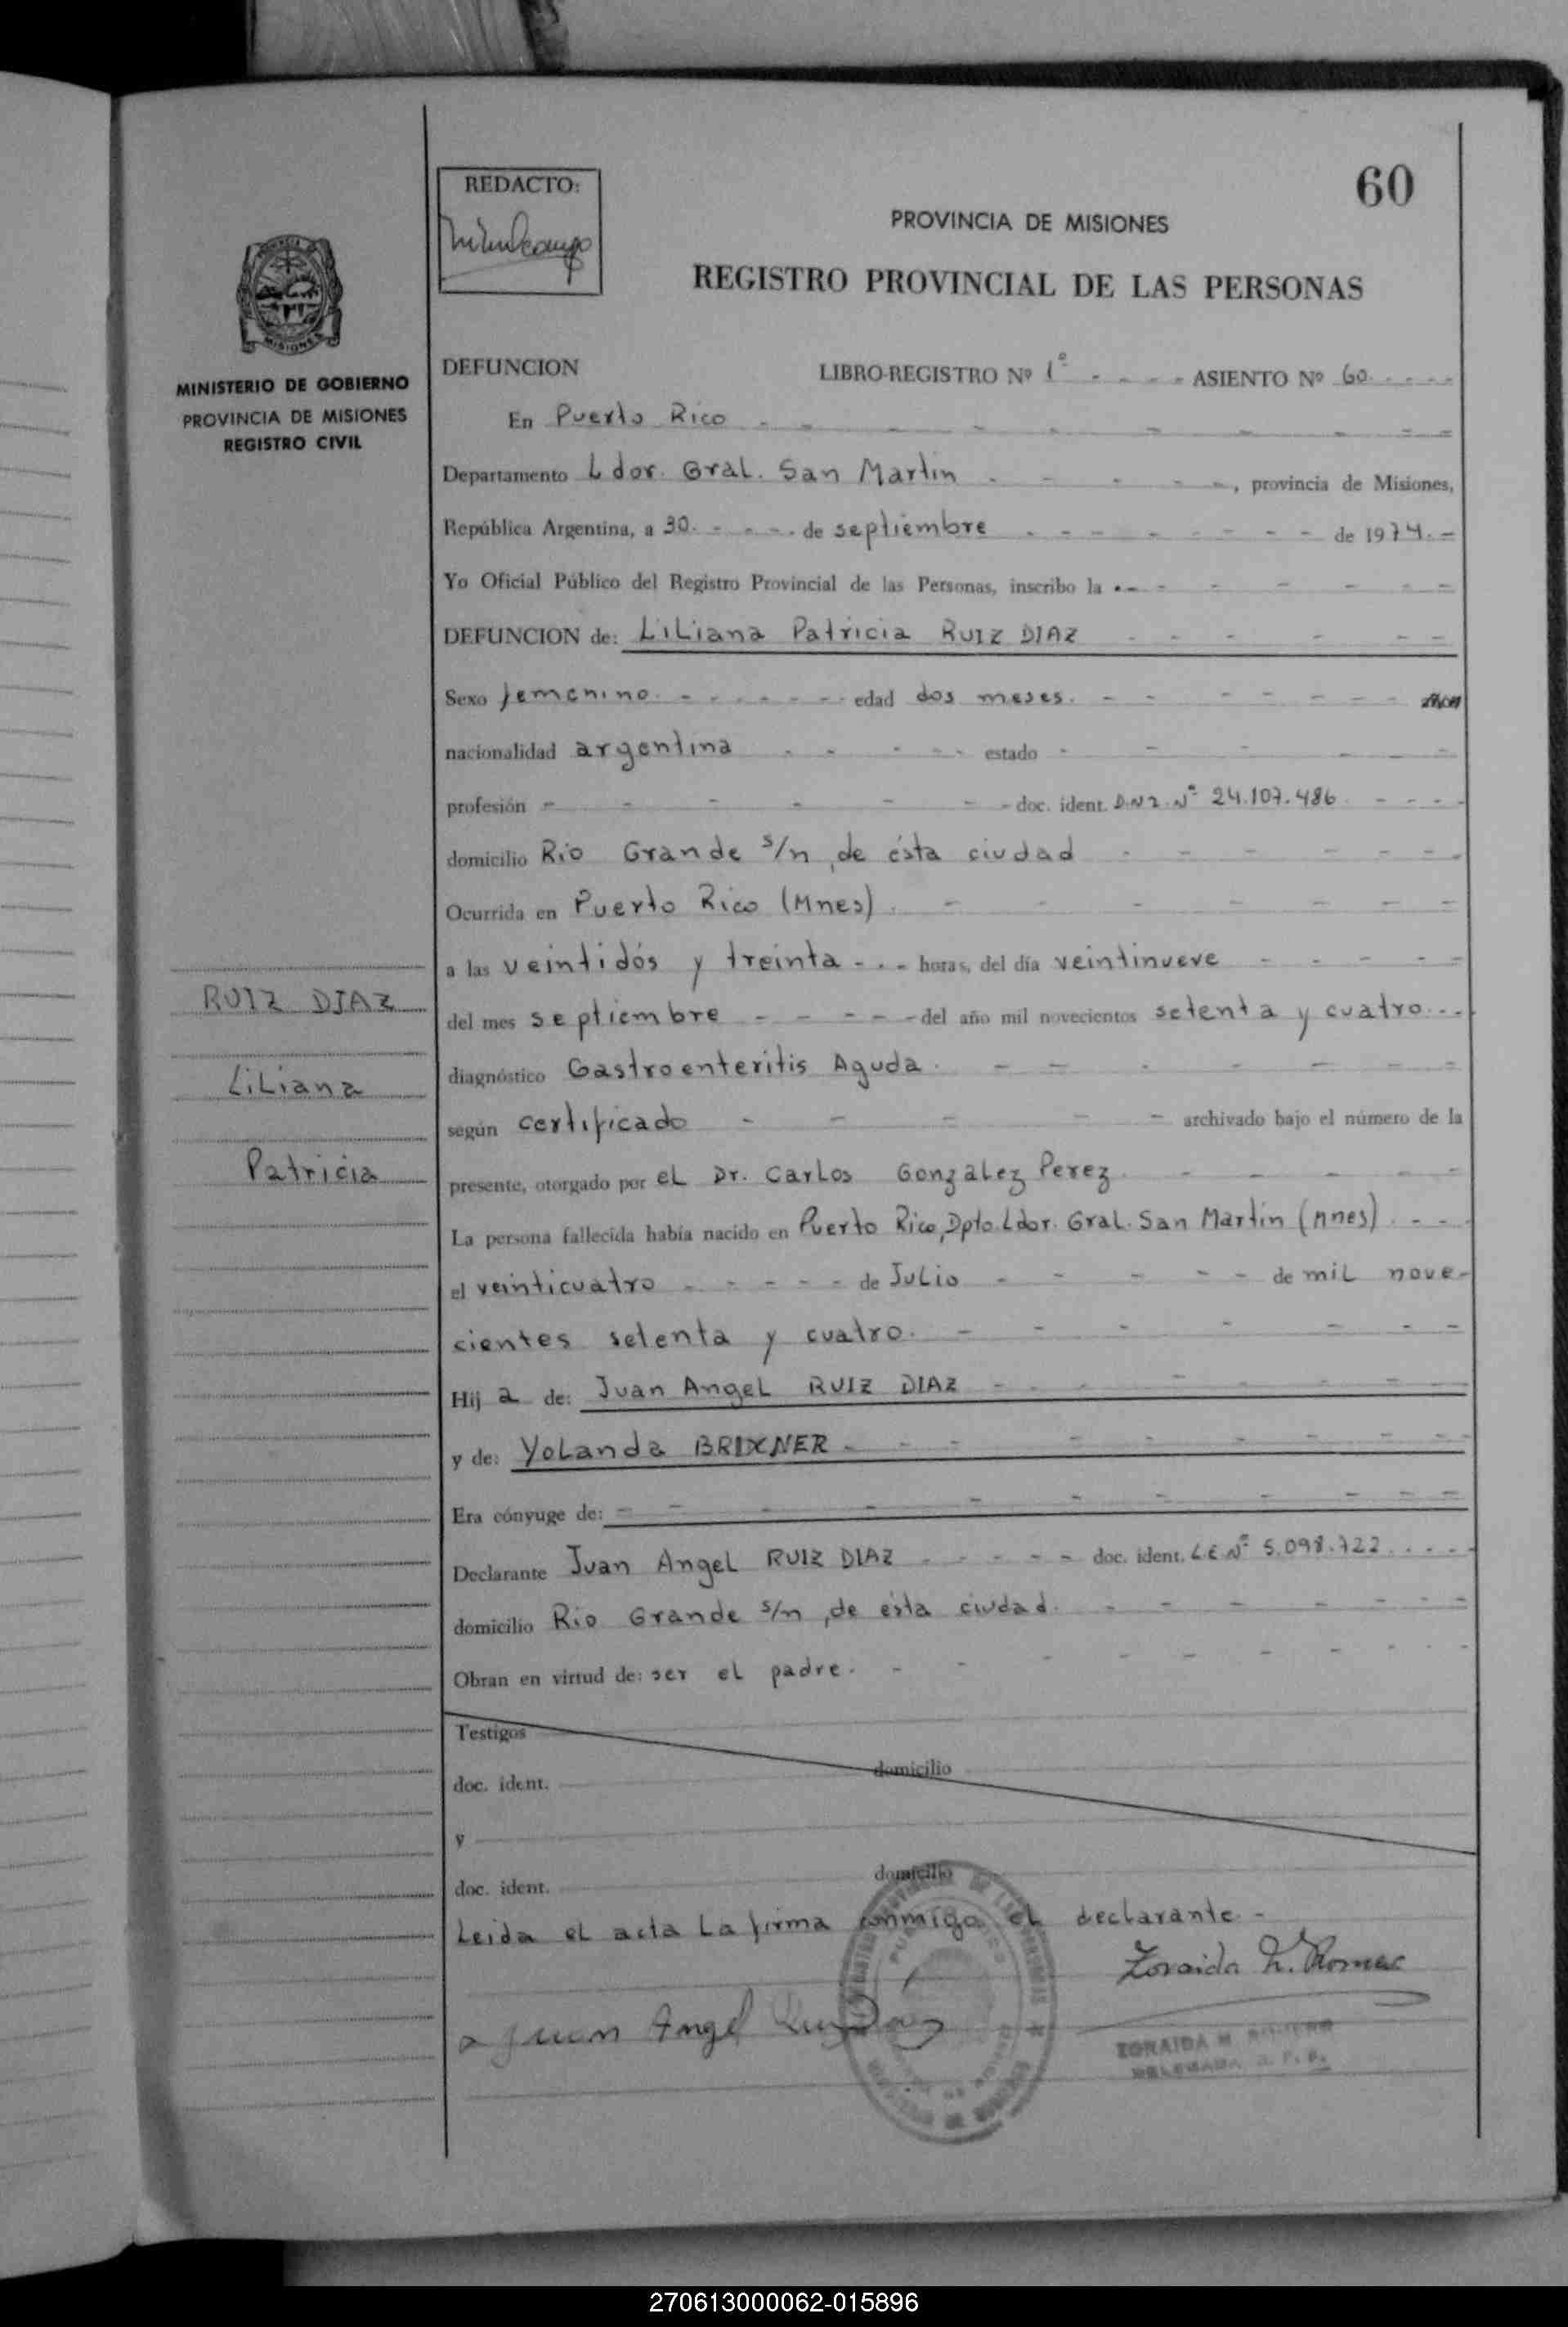 60
REDACTO:
PROVINCIA DE MISIONES
REGISTRO PROVINCIAL DE LAS PERSONAS
MISIONES
MINISTERIO DE GOBIERNO
PROVINCIA DE MISIONES
REGISTRO CIVIL
RUIZ DIAZ
Liliana
Patricia
DEFUNCION LIBRO-REGISTRO Nº 1º - - - - ASIENTO Nº 60 - - - -
En Puerto Rico - - - - - - - - -
Departamento Ldor. Gral. San Martin - - - - -, provincia de Misiones,
República Argentina, a 30. - - - - de septiembre - - - - - - - - de 1974. -
Yo Oficial Público del Registro Provincial de las Personas, inscribo la - - - - - - -
DEFUNCION de: Liliana Patricia RUIZ DIAZ - - - - - -
Sexo femenino. - - - - - - edad dos meses. - - - - - - -
nacionalidad argentina - - - - - estado - - - - -
profesión - - - - - - - doc. ident. D.N.I. Nº 24.107.486 - - - -
domicilio Rio Grande s/n, de ésta ciudad - - - - - - -
Ocurrida en Puerto Rico (Mnes). - - - - - - -
a las veintidós y treinta - - - horas, del día veintinueve - - - - -
del mes septiembre - - - - - del año mil novecientos setenta y cuatro - - -
diagnóstico Gastroenteritis Aguda. - - - - - - -
según certificado - - - - - archivado bajo el número de la
presente, otorgado por el Dr. Carlos Gonzalez Perez. - - - - -
La persona fallecida había nacido en Puerto Rico, Dpto. Ldor. Gral. San Martin (Mnes) . - - .
el veinticuatro - - - - - de Julio - - - - - de mil nove-
cientes setenta y cuatro. - - - - - - -
Hij a de: Juan Angel RUIZ DIAZ - - - - - - -
y de: Yolanda BRIXNER - - - - - - - - -
Era cónyuge de: - - - - - - - - - - -
Declarante Juan Angel RUIZ DIAZ - - - - - doc. ident. L.E Nº 5.098.722 . . . . .
domicilio Rio Grande s/n, de ésta ciudad. - - - - - - -
Obran en virtud de: ser el padre. - - - - - - - - -
Testigos
doc. ident. domicilio
y
doc. ident. domicilio
Leida el acta La firma conmigo el declarante. -
Zoraida M. Romero
Juan Angel Ruiz Diaz
ZORAIDA M ROMERO
DELEGADA R. P. P.
270613000062-015896